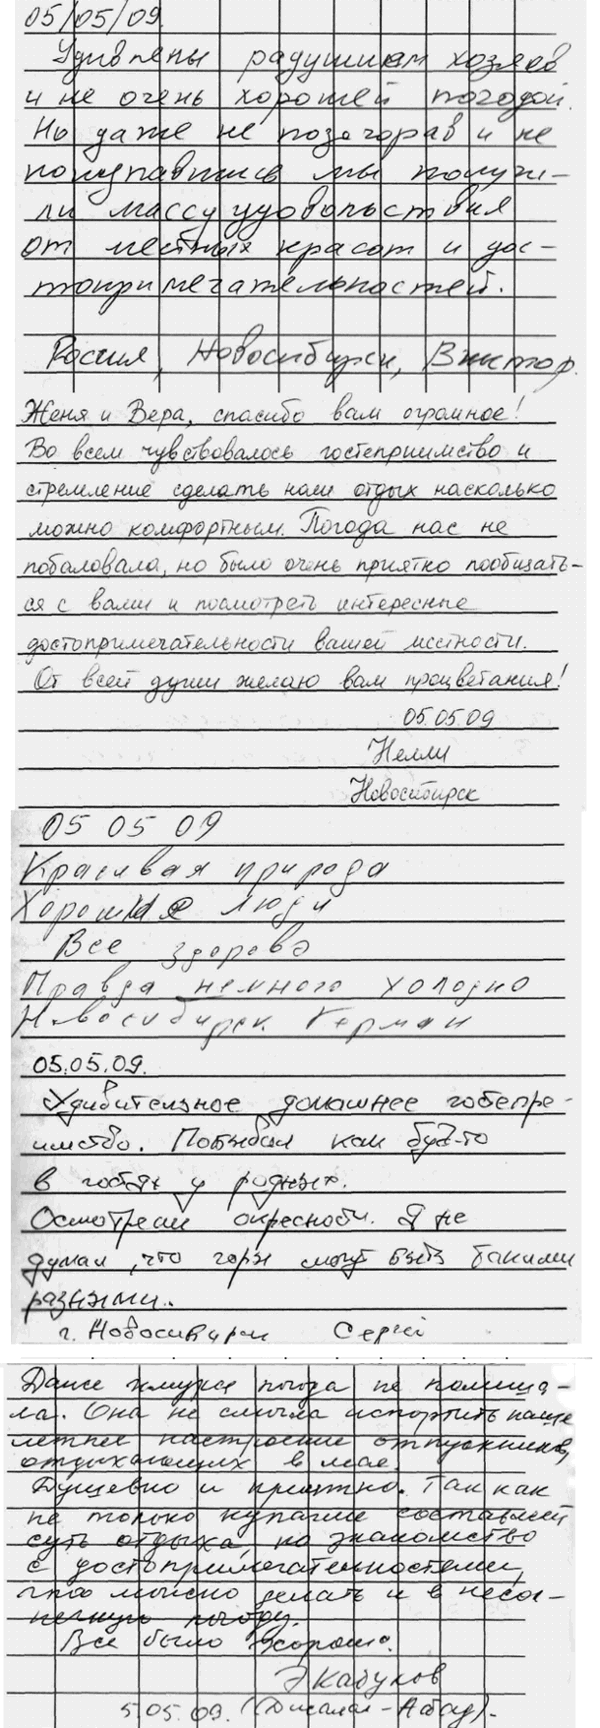 05/05/09.
Удивлены радушием хозяев
и не очень хорошей погодой.
Но даже не позагорав и не
покупавшись мы получи-
ли массу удовольствия
от местных красот и дос-
топримечательностей.
Россия, Новосибирск, Виктор.
Женя и Вера, спасибо вам огромное!
Во всем чувствовалось гостеприимство и
стремление сделать наш отдых насколько
можно комфортным. Погода нас не
побаловала, но было очень приятно пообщать-
ся с вами и посмотреть интересные
достопримечательности вашей местности.
От всей души желаю вам процветания!
05.05.09
Нелли
Новосибирск
05 05 09
Красивая природа
Хорошие люди
Все здорово
Правда немного холодно
Новосибирск Герман
05.05.09.
Удивительное домашнее гостепре-
имство. Побывал как будто
в гостях у родных.
Осмотрели окресности. Я не
думал, что горы могут быть такими
разными.
г. Новосибирск Сергей
Даже хмурая погода не помеша-
ла. Она не смогла испортить наше
летнее настроение отпускников,
отдыхающих в мае.
Душевно и приятно. Так как
не только купание составляет
суть отдыха, но знакомство
с достопримечательностями,
что можно делать и в несол-
нечную погоду.
Все было хорошо.
Э Кабуков
5.05.09. - Абад).